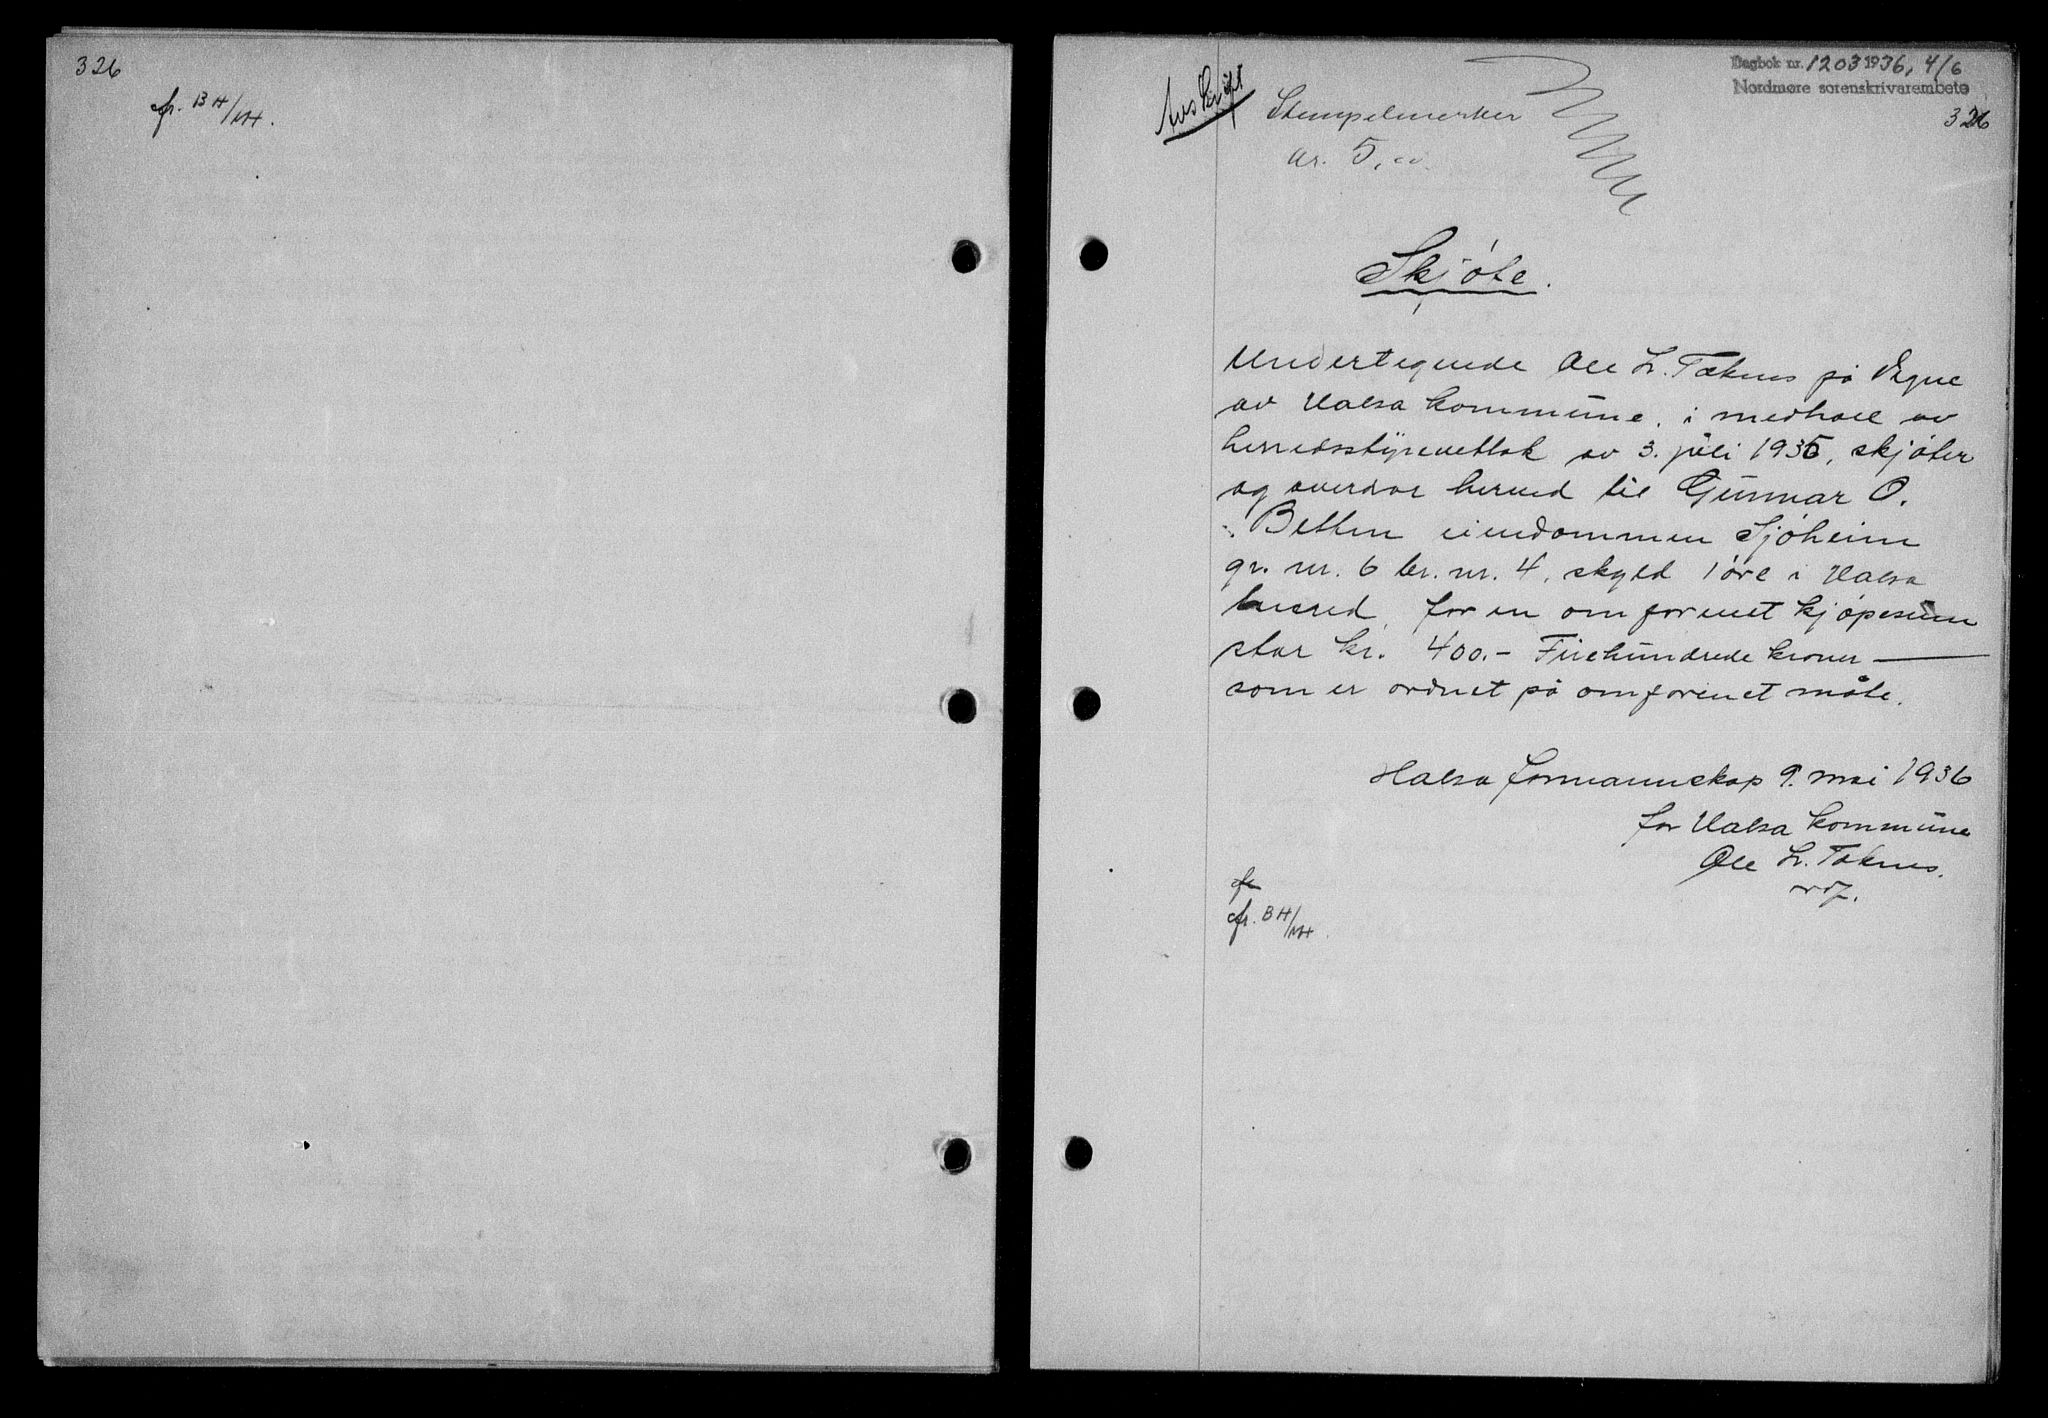 326
cfr. BH/NH.
Avskrift
Dagbok nr. 1203 1936, 4/6
Nordmøre sorenskrivarembete
326
Stempelmerker
kr. 5,00.
Skjöte.
Undertegnede Ole L. Taknes på vegne
av Halsa kommune, i medhold av
herredsstyrevettak av 3. juli 1935, skjöter
og overdrar herved til Gunnar O.
Betten eiendommen Sjöheim
gr. nr. 6 br. nr. 4, skyld 1 öre i Halsa
herred, for en omforenet kjöpesum
stor kr. 400.- Firehundrede kroner —
som er ordnet på omforenet måte.
Halsa formannskap 9. mai 1936
for Halsa kommune
Ole L. Taknes.
ordf.
cfr. BH/NH.